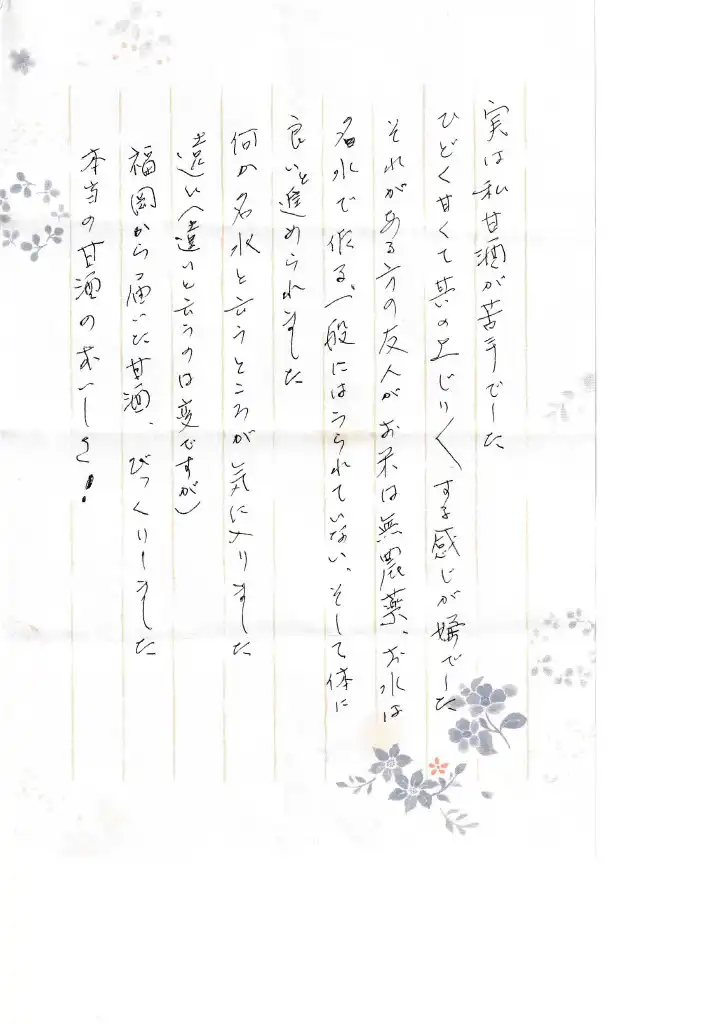 実は私甘酒が苦手でした
ひどく甘くて其の上じりじりする感じが嫌でした
それがある方の友人がお米は無農薬、お水は
名水で作る、一般にはうられていない、そして体に
良いと進められました
何か名水と言うところが気に入りました
遠い(遠いと言うのは変ですが)
福岡から届いた甘酒、びっくりしました
本当の甘酒のおいしさ!